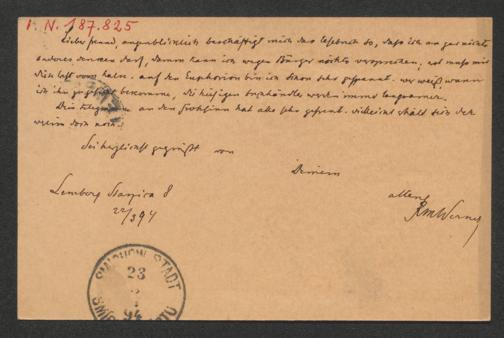 I. N. 187.825
Lieber freund, augenblicklich beschäftigt mich das lesebuch so, dass ich an gar nichts
anderes denken darf, darum kann ich wegen Bürger nichts versprechen,
auf den Euphorion bin ich schon sehr gespannt. wer weiß, wann
ich ihn zu gesicht bekomme, die hiesigen buchhändler werden immer langsamer.
Dein telegramm an den hat alle sehr gefreut.
verein doch noch!
Sei herzlichst gegrüßt von
Deinem
alten
RMWerner
Lemberg 8
22/3 94
SMICHOW STADT
23
94